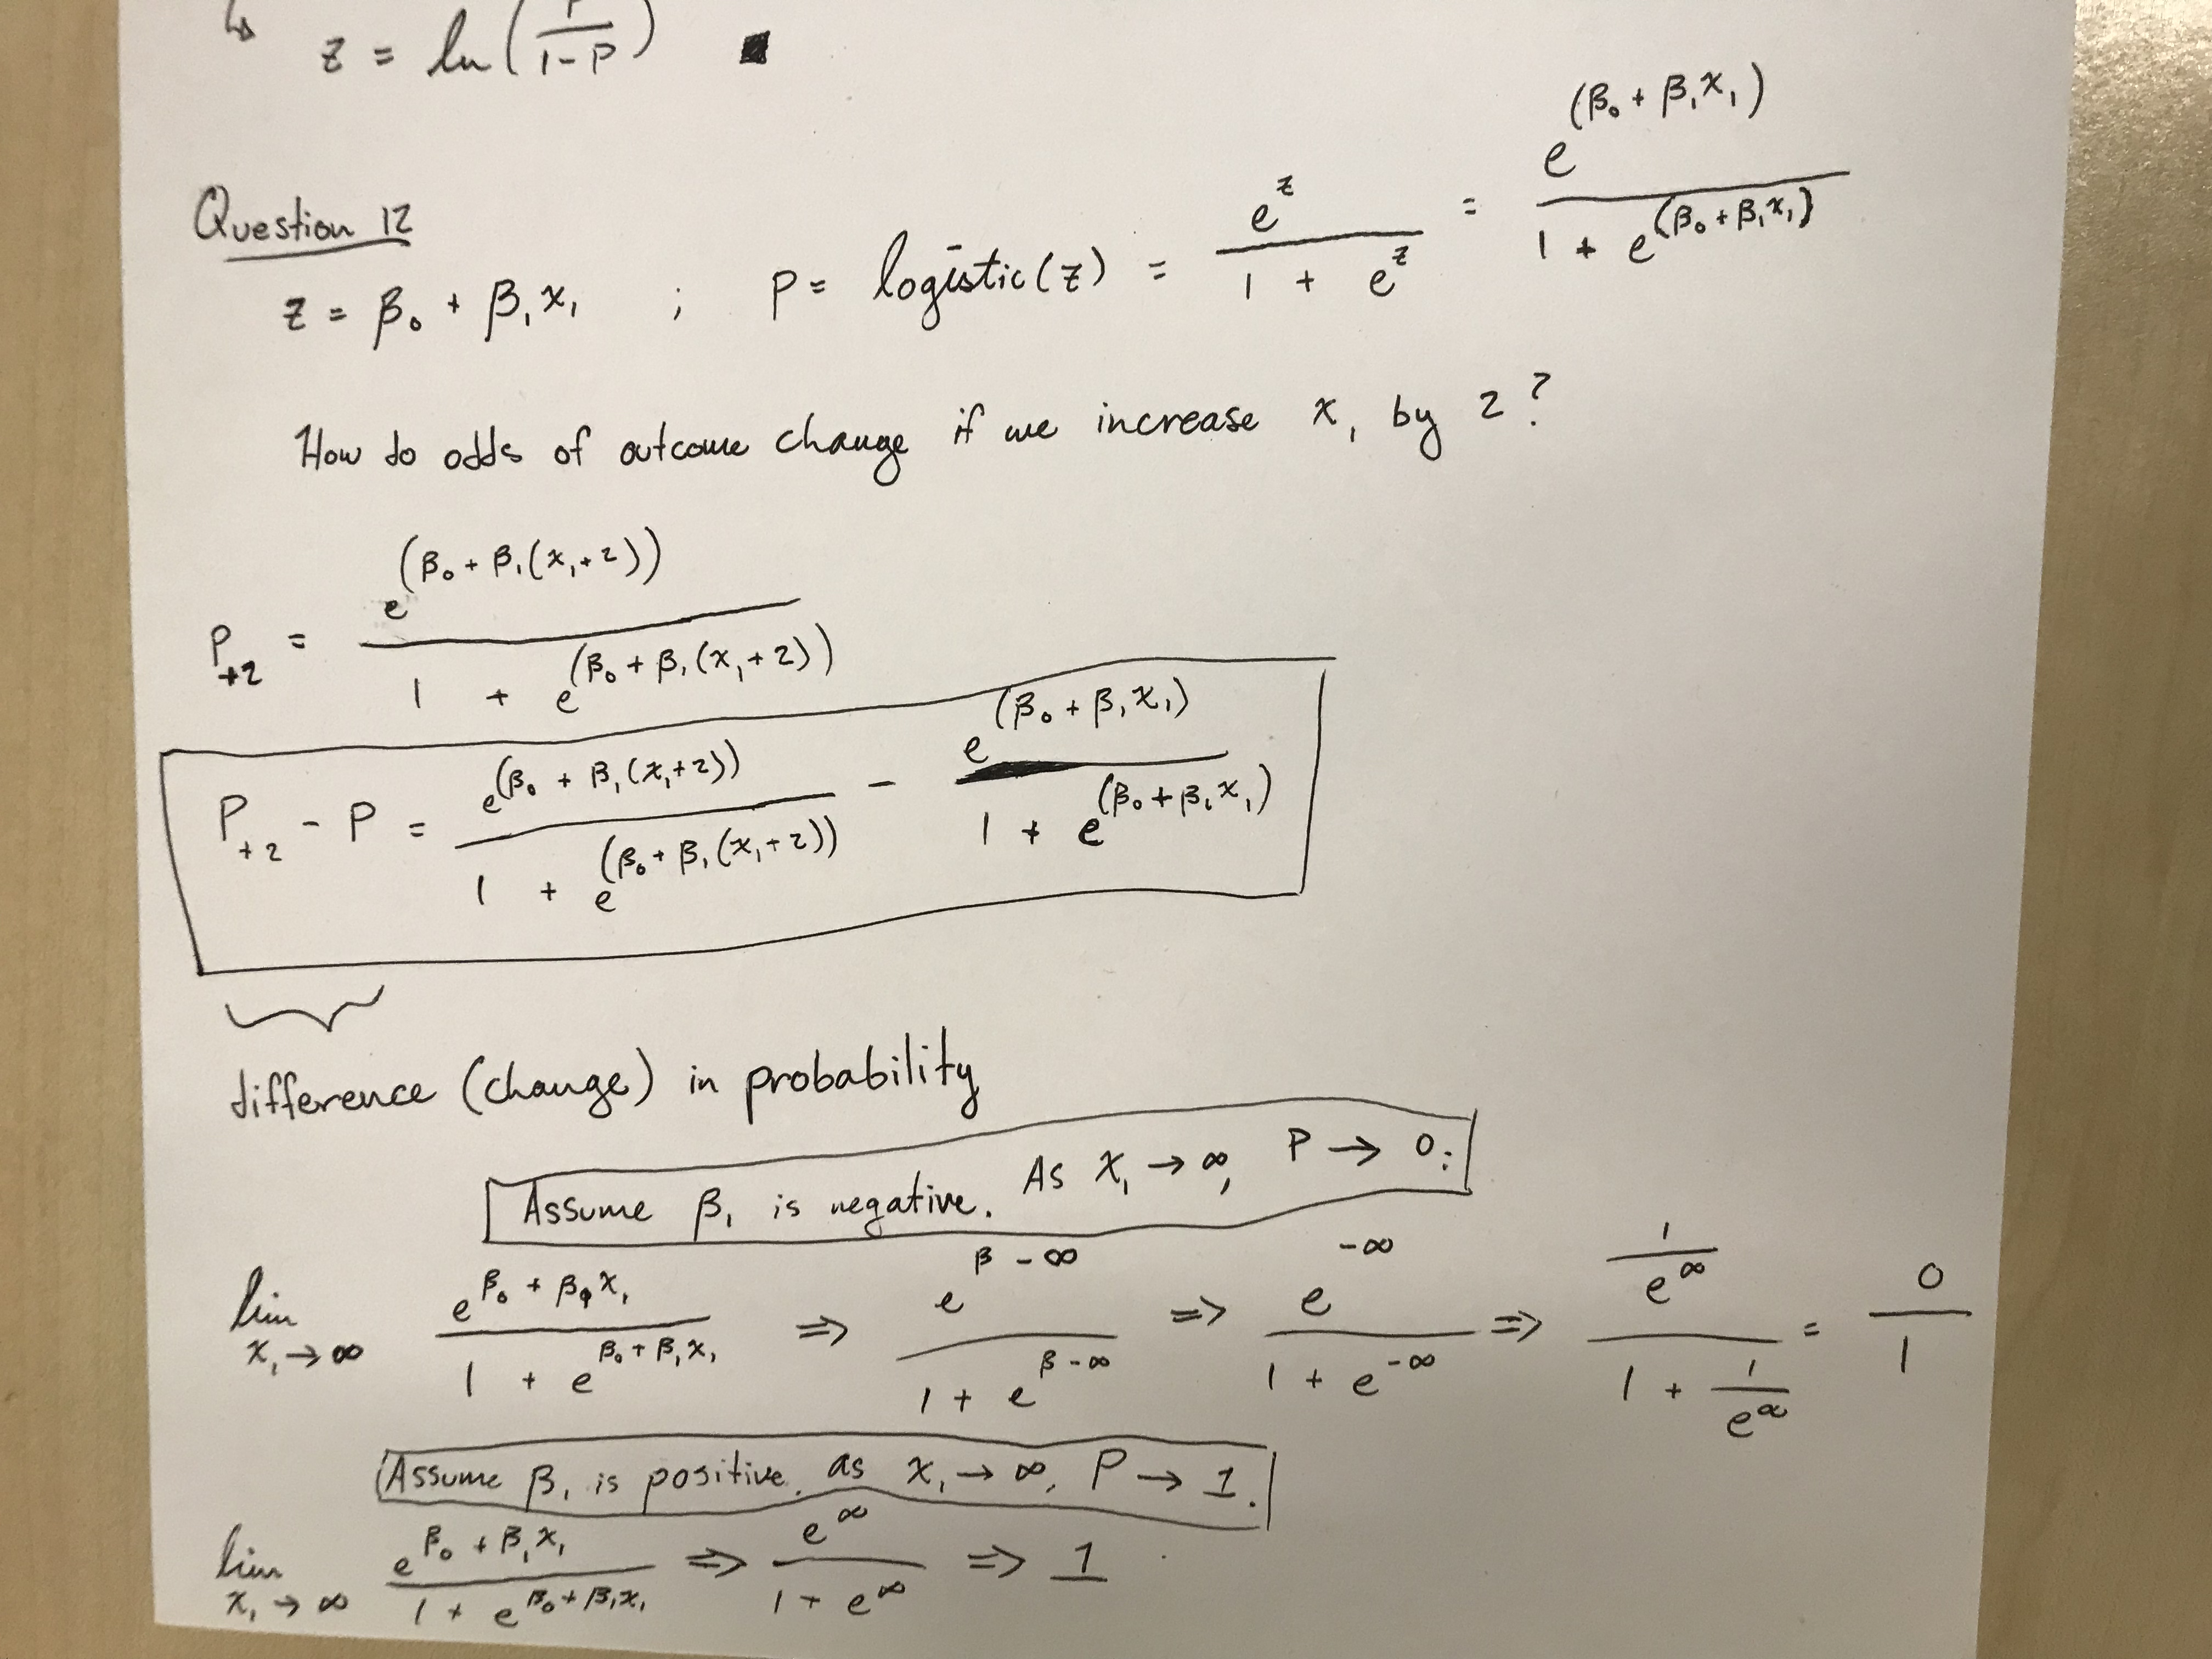 ↳ z = ln( P / 1 - P ) ■
Question 12
z = β₀ + β₁x₁ ; P = logistic(z) = e^z / 1 + e^z = e^(β₀ + β₁x₁) / 1 + e^(β₀ + β₁x₁)
How do odds of outcome change if we increase x₁ by 2?
P₊₂ = e^(β₀ + β₁(x₁+2)) / 1 + e^(β₀ + β₁(x₁+2))
P₊₂ - P = e^(β₀ + β₁(x₁+2)) / 1 + e^(β₀ + β₁(x₁+2)) - e^(β₀ + β₁x₁) / 1 + e^(β₀ + β₁x₁)
difference (change) in probability
Assume β₁ is negative. As x₁ → ∞, P → 0.
lim x₁ → ∞ e^β₀ + β₁x₁ / 1 + e^β₀ + β₁x₁ ⇒ e^β - ∞ / 1 + e^β - ∞ ⇒ e^-∞ / 1 + e^-∞ ⇒ 1/e^∞ / 1 + 1/e^∞ = 0 / 1
Assume β₁ is positive, as x₁ → ∞, P → 1.
lim x₁ → ∞ e^β₀ + β₁x₁ / 1 + e^β₀ + β₁x₁ ⇒ e^∞ / 1 + e^∞ ⇒ 1